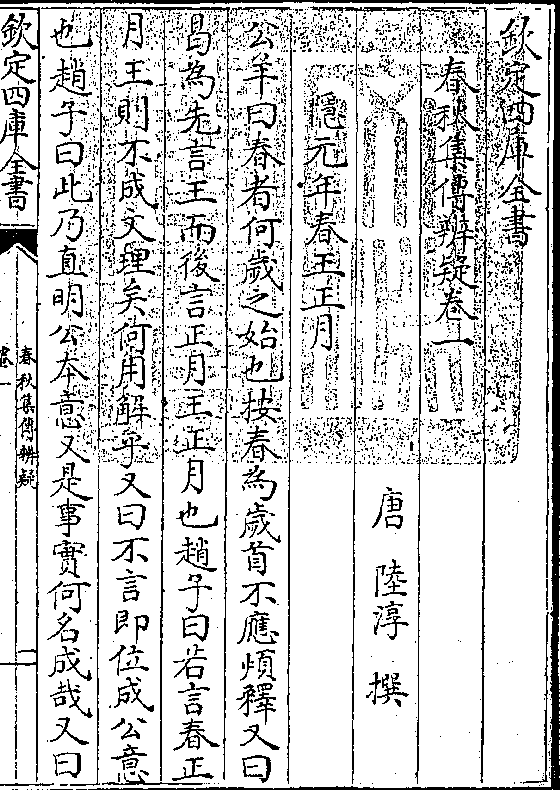 欽定四庫全書
春秋集傳辨疑卷一
唐 陸淳 撰
隱元年春王正月
公羊曰春者何歲之始也按春為歲首不應煩釋又曰
曷為先言王而後言正月王正月也趙子曰若言春正
月王則不成文理矣何用解乎又曰不言即位成公意
也趙子曰此乃直明公本意又是事實何名成哉又曰
欽定四庫全書
春秋集傳辨疑
卷一
一